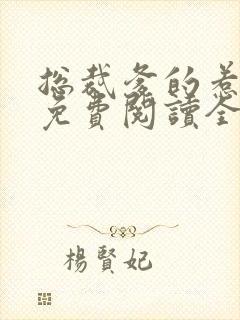 总裁爹的惹
免費閱讀全
楊賢妃